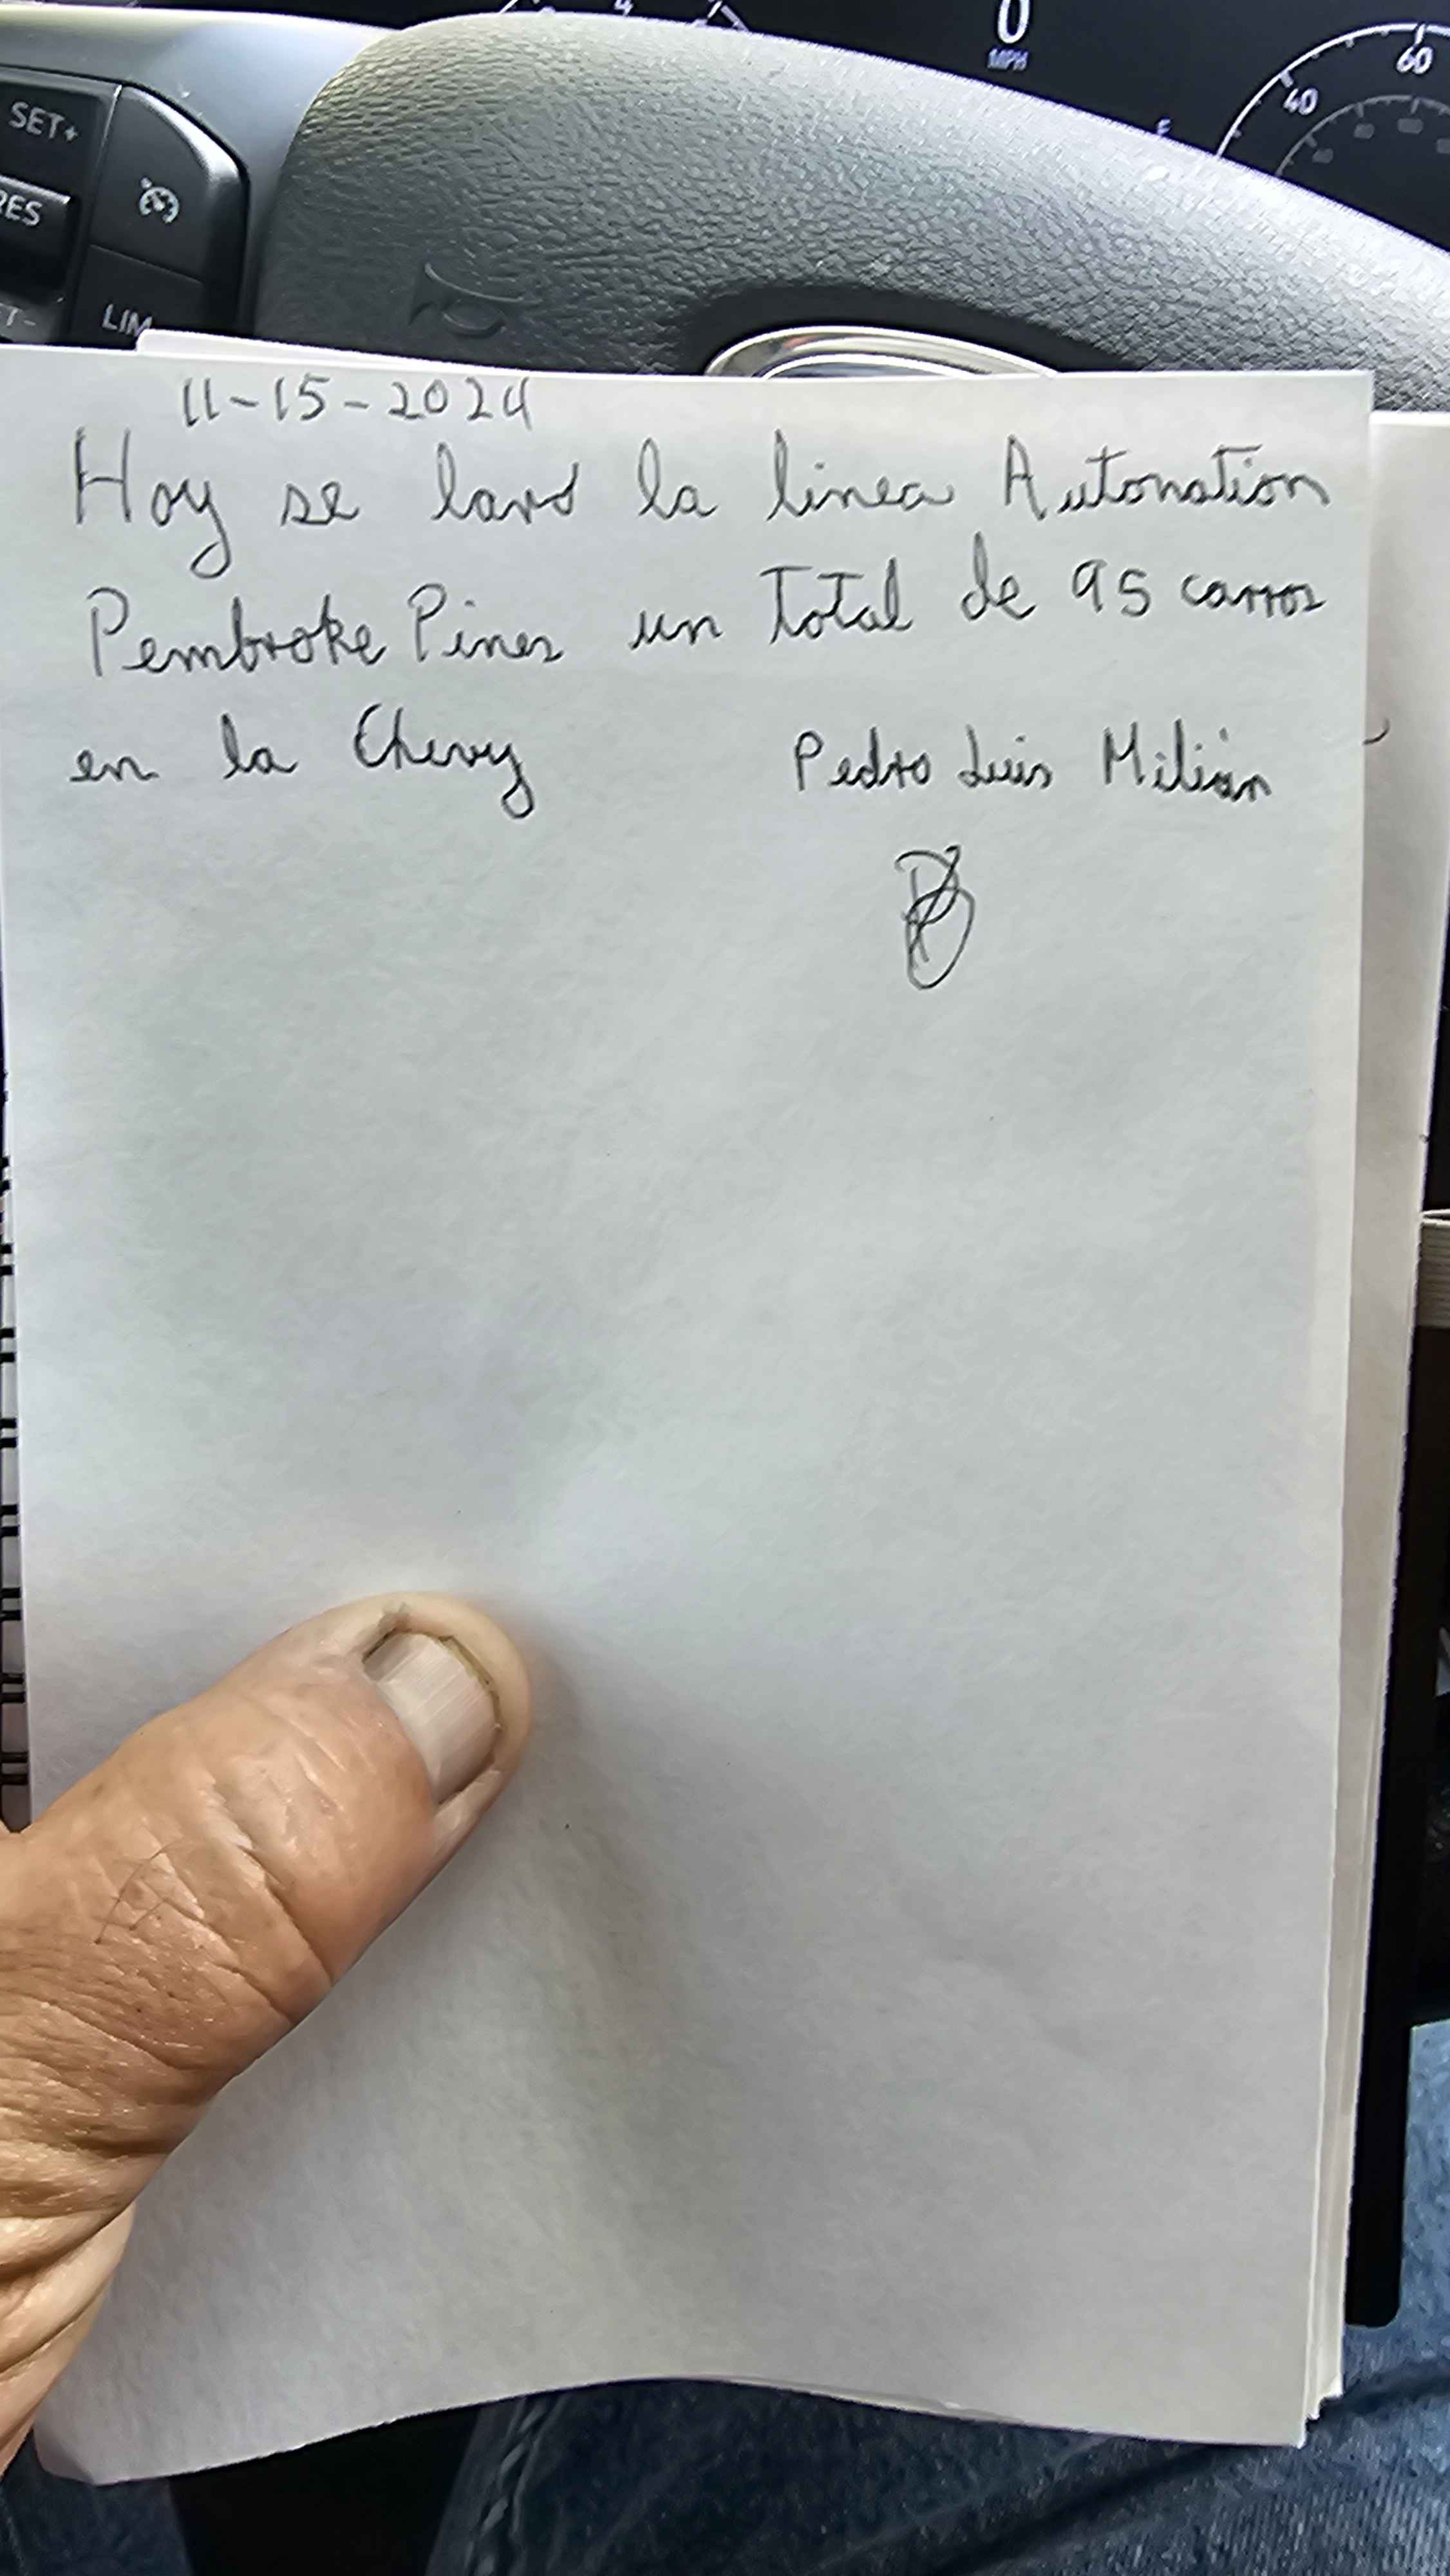 4
0
MPH
60
40
F
SET+
RES
LIM
11-15-2024
Hoy se lavó la linea Autonation
Pembroke Pines un total de 95 carros
en la Chevy
Pedro Luis Milián